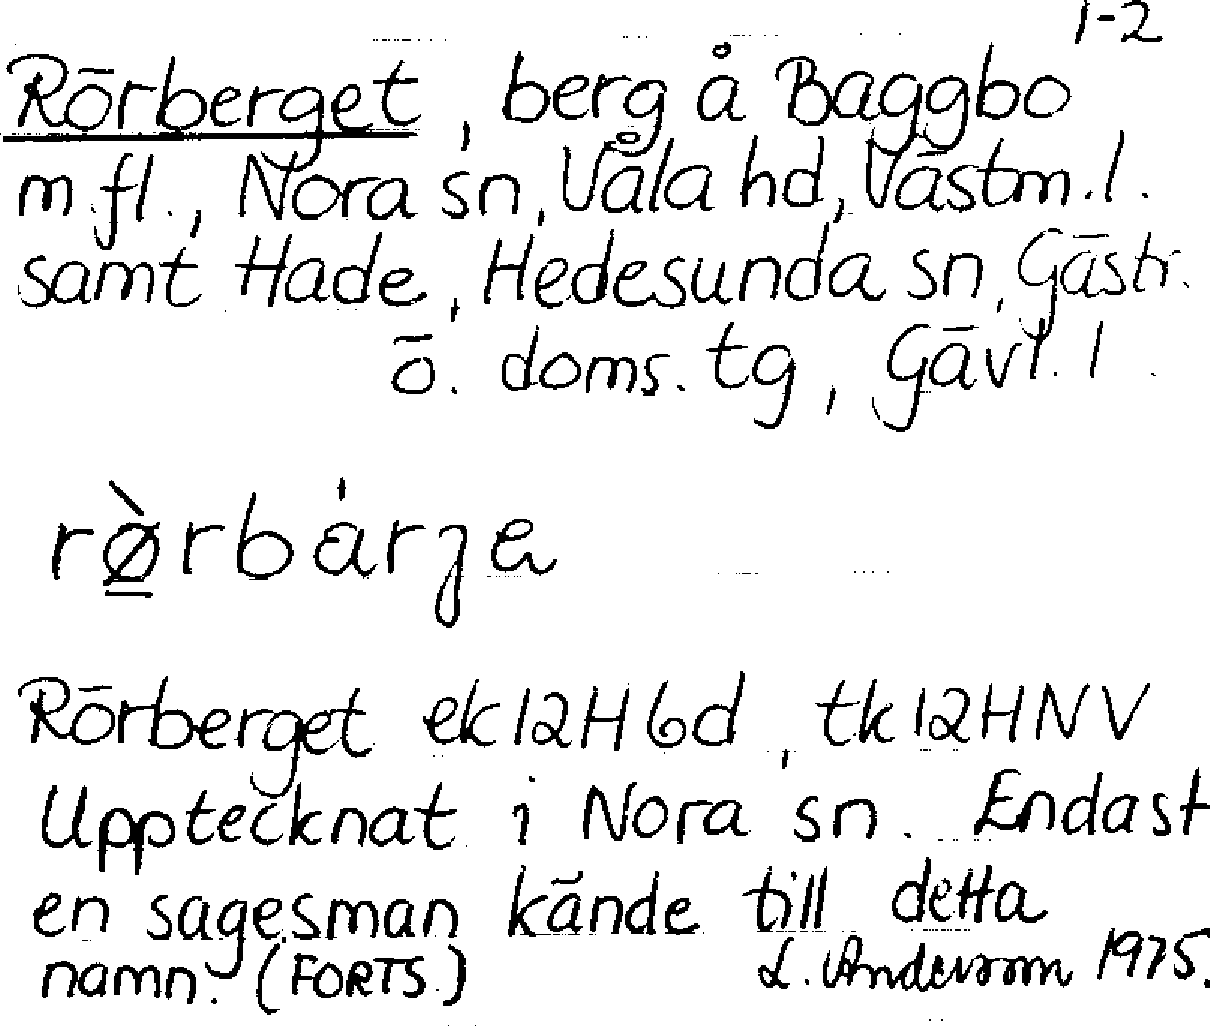 1-2
Rörberget, berg å Baggbo
m.fl., Nora sn, Våla hd, Västm.l.
samt Hade, Hedesunda sn, Gästr.
ö. doms. tg, Gävl. l.
rø̱̀rbàrʒe
Rörberget ek 12H6d, tk 12HNV
Upptecknat i Nora sn. Endast
en sagesman kände till detta
namn. (FORTS.)
L. Andersson 1975.